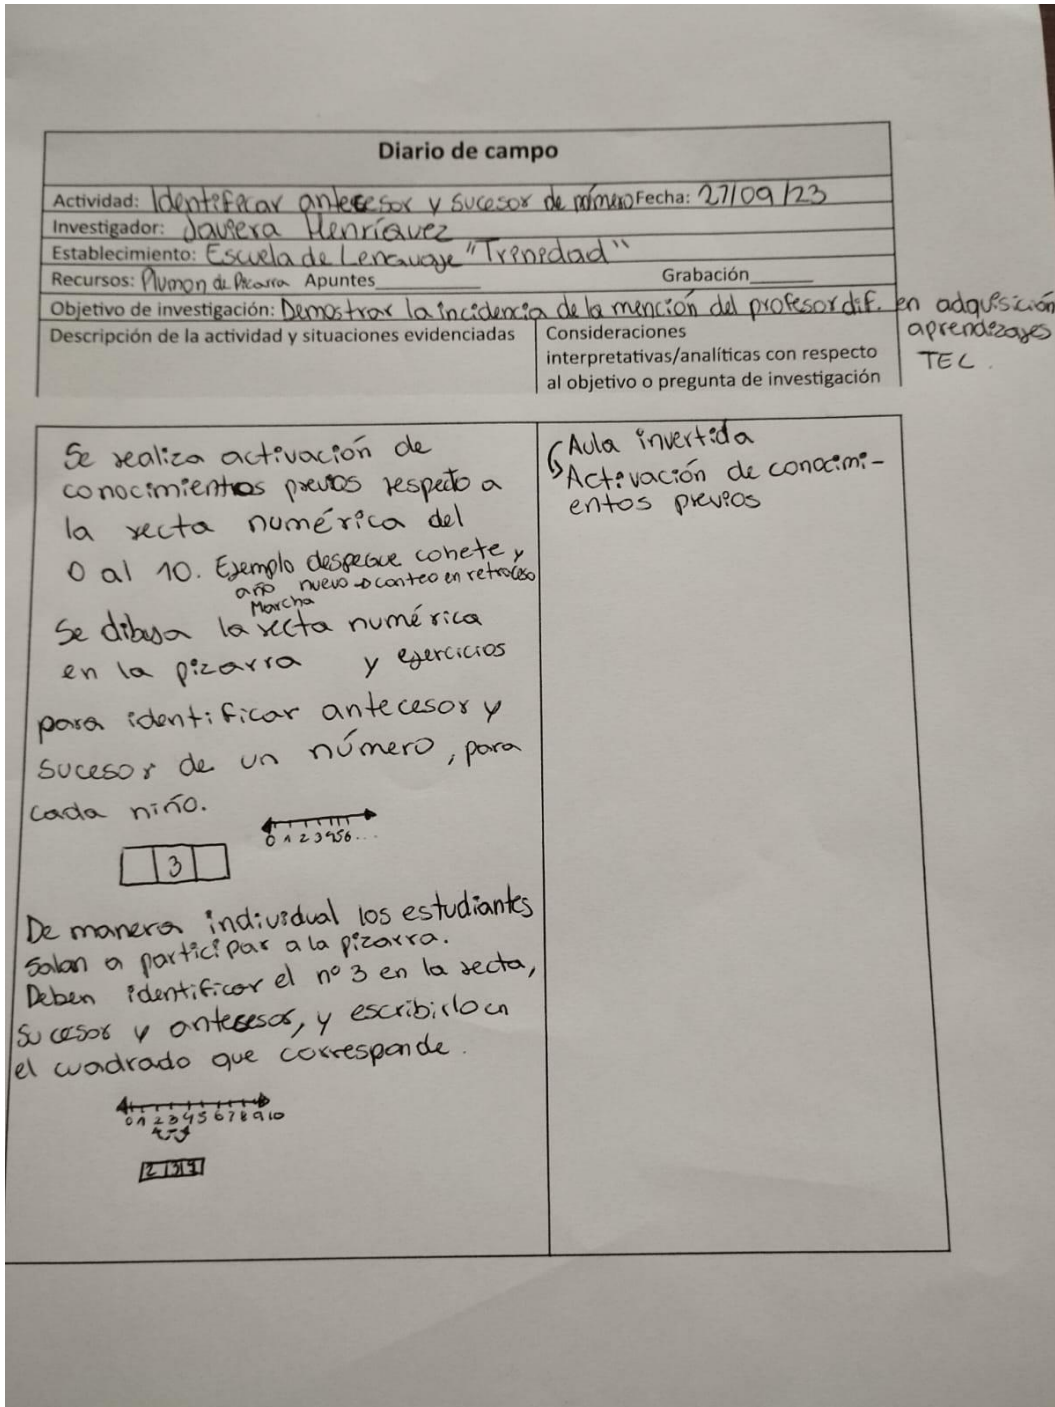 Diario de campo
Actividad: Identificar antecesor y sucesor de número Fecha: 27/09/23
Investigador: Javiera Henríquez
Establecimiento: Escuela de Lenguaje "Trinidad"
Recursos: Plumon de Picarra Apuntes__________ Grabación______
Objetivo de investigación: Demostrar la incidencia de la mención del profesor dif. en adquisición
aprendizajes
TEL.
Descripción de la actividad y situaciones evidenciadas
Consideraciones
interpretativas/analíticas con respecto
al objetivo o pregunta de investigación
Se realiza activación de
conocimientos previos respecto a
la recta numérica del
0 al 10. Ejemplo despegue cohete y
año nuevo → conteo en retroceso
Marcha
Se dibuja la recta numérica
en la pizarra y ejercicios
para identificar antecesor y
sucesor de un número, para
cada niño.
0 1 2 3 4 5 6 ...
3
De manera individual los estudiantes
salan a participar a la pizarra.
Deben identificar el nº 3 en la recta,
sucesor y antesesor, y escribirlo en
el cuadrado que corresponde.
0 1 2 3 4 5 6 7 8 9 10
2 3 4
Aula invertida
Activación de conocimi-
entos previos